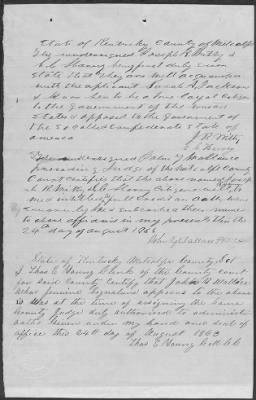 State of Kentucky County of Metcalfe
The undersigned Joseph R Witty &
C C Henry being first duly sworn
State that they are well acquainted
with the applicant Sarah A Jackson
& know her to be a true loyal citizen
to the government of the United
States & opposed to the government of
the so called Confederate States of
america
J. R. Witty
C C Henry
The undersigned John Wallace
presiding Judge of Metcalfe County
Court certifies that the above named Joseph
R Witty & C C Henry citizens well to
me entitled to full credit on oath were
sworn by me & subscribed their names
to above affidavit in my presence this the
24th day of August 1863
John Wallace
State of Kentucky Metcalfe County Sct
I Thos E Young Clerk of the County court
for said County certify that John Wallace
whose genuine signature appears to the above
is & was at the time of assigning the same
County Judge duly authorized to administer
oaths Given under my hand and seal of
office this 24th day of August 1863
Thos E Young